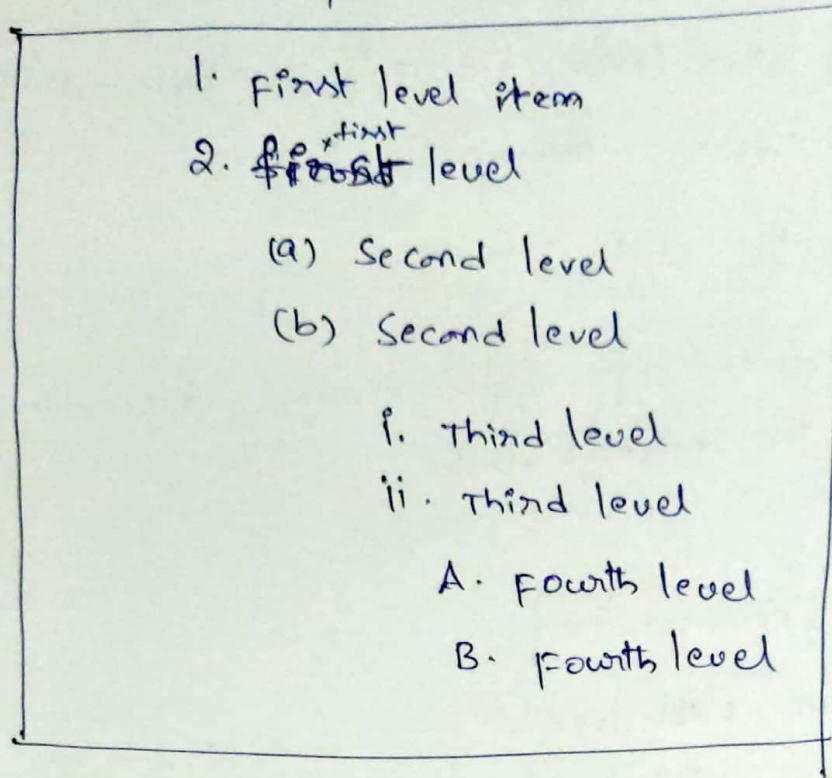 1. First level item
2. first level
(a) Second level
(b) Second level
i. Third level
ii. Third level
A. Fourth level
B. Fourth level